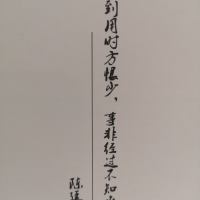 到用时方恨少，事非经过不知
陈